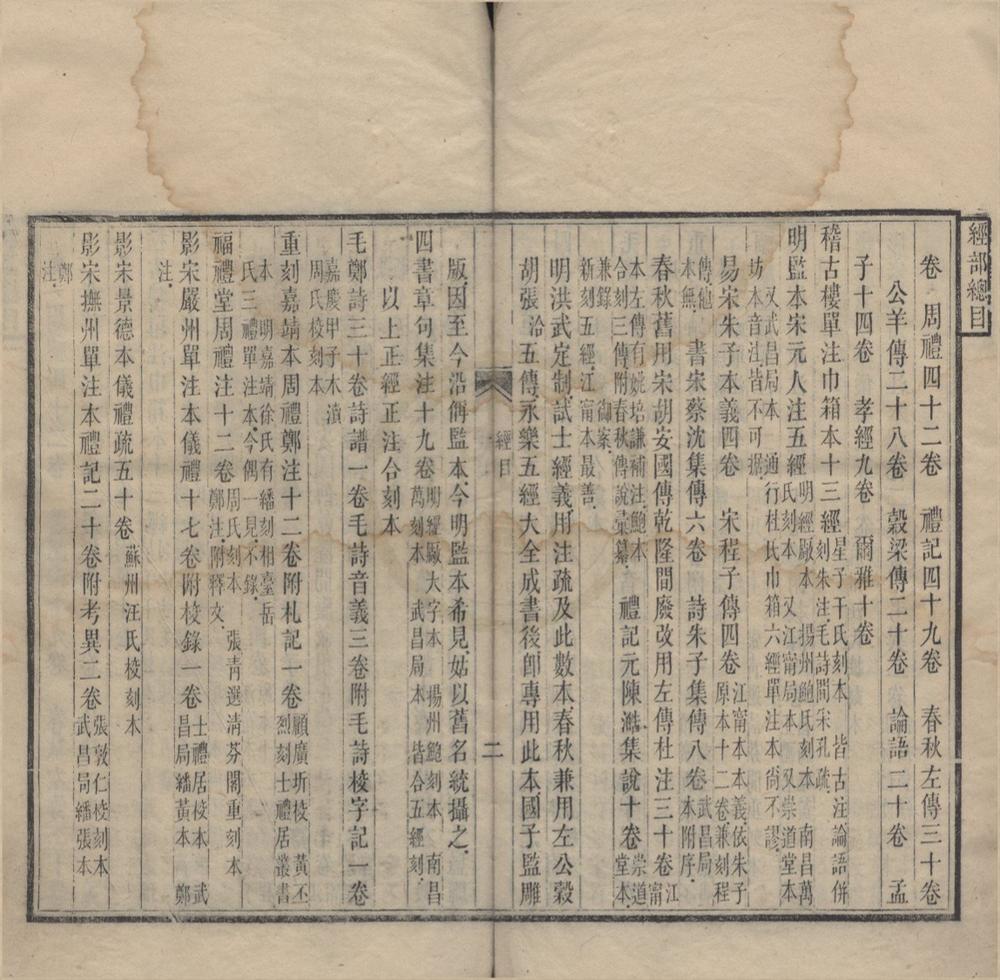 經部總目
卷 周禮四十二卷 禮記四十九卷 春秋左傳三十卷
公羊傳二十八卷 穀梁傳二十卷 論語二十卷 孟
子十四卷 孝經九卷 爾雅十卷
稽古樓單注巾箱本十三經 星子干氏刻本 皆古注論語併
刻朱注毛詩間采孔疏
明監本宋元人注五經 明經厰本 揚州鮑氏刻本 南昌萬
氏刻本 又江甯局本 又崇道堂本
又武昌局本 通行杜氏巾箱六經單注本尙不謬
坊本音注皆不可據
易宋朱子本義四卷 宋程子傳四卷 江甯本本義依朱子
原本十二卷兼刻程
傳他
本無 書宋蔡沈集傳六卷 詩朱子集傳八卷 武昌局
本附序
春秋舊用宋胡安國傳乾隆間廢改用左傳杜注三十卷 江
甯
本左傳有姚培謙補注鮑本
合刻三傳附春秋傳說彙纂 禮記元陳澔集說十卷 崇道
堂本
兼錄 御案
新刻五經江甯本最善
明洪武定制試士經義用注疏及此數本春秋兼用左公穀
胡張洽五傳永樂五經大全成書後卽專用此本國子監雕
經目
二
版因至今沿偁監本今明監本希見姑以舊名統攝之
四書章句集注十九卷 明經厰大字本 揚州鮑刻本 南昌
萬刻本 武昌局本 皆合五經刻
以上正經正注合刻本
毛鄭詩三十卷詩譜一卷毛詩音義三卷附毛詩校字記一卷
嘉慶甲子木瀆
周氏校刻本
重刻嘉靖本周禮鄭注十二卷附札記一卷 顧廣圻校 黃丕
烈刻士禮居叢書
本 明嘉靖徐氏有繙刻相臺岳
氏三禮單注本今偶一見不錄
福禮堂周禮注十二卷 周氏刻本 張靑選淸芬閣重刻本
鄭注附釋文
影宋嚴州單注本儀禮十七卷附校錄一卷 士禮居校本 武
昌局繙黃本 鄭
注
影宋景德本儀禮疏五十卷 蘇州汪氏校刻本
影宋撫州單注本禮記二十卷附考異二卷 張敦仁校刻本
武昌局繙張本
鄭
注